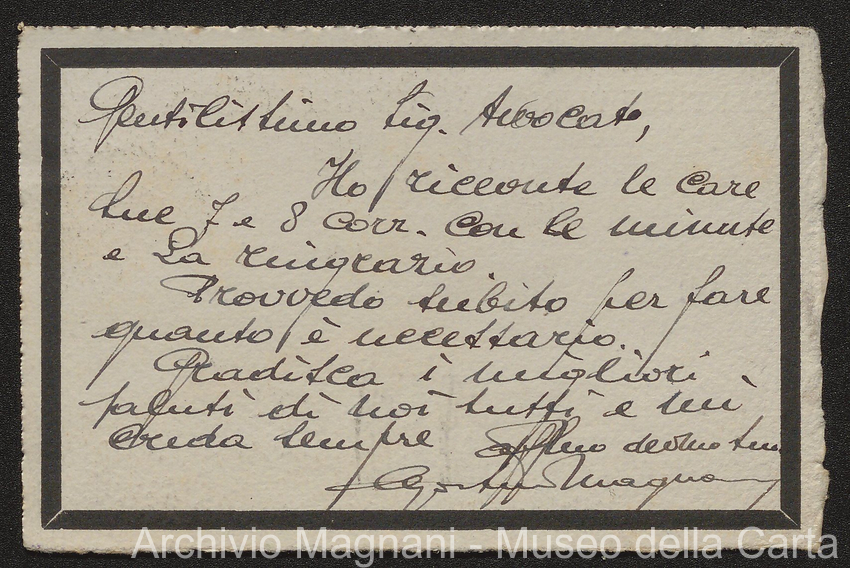 Gentilissimo Sig. Avvocato,
Ho ricevute le care
sue 7 e 8 corr. con le minute
e La ringrazio
Provvedo subito per fare
quanto è necessario.
Gradisca i migliori
saluti di noi tutti e mi
creda sempre affmo devmo suo
Magnani
Archivio Magnani - Museo della Carta